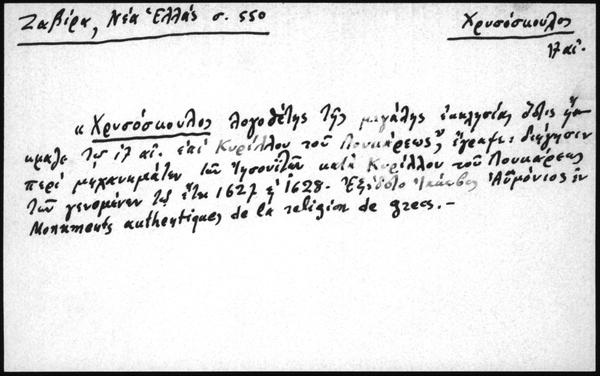 Ζαβίρα, Νέα Ἑλλάς σ. 550
Χρυσόσκουλος
17 αἰ.
« Χρυσόσκουλος λογοθέτης τῆς μεγάλης ἐκκλησίας ὅστις ἤ-
κμαζε τῷ 17 αἰ. ἐπί Κυρίλλου τοῦ Λουκάρεως, ἔγραψε: διήγησιν
περί μηχανημάτων τῶν Ἰησουϊτῶν κατά Κυρίλλου τοῦ Λουκάρεως
τῶν γενομένων τῷ ἔτει 1627 ἤ 1628. Ἐξέδοτο Ἰάκωβος Αὐμόνιος ἐν
Monuments authentiques de la religion de grecs. –